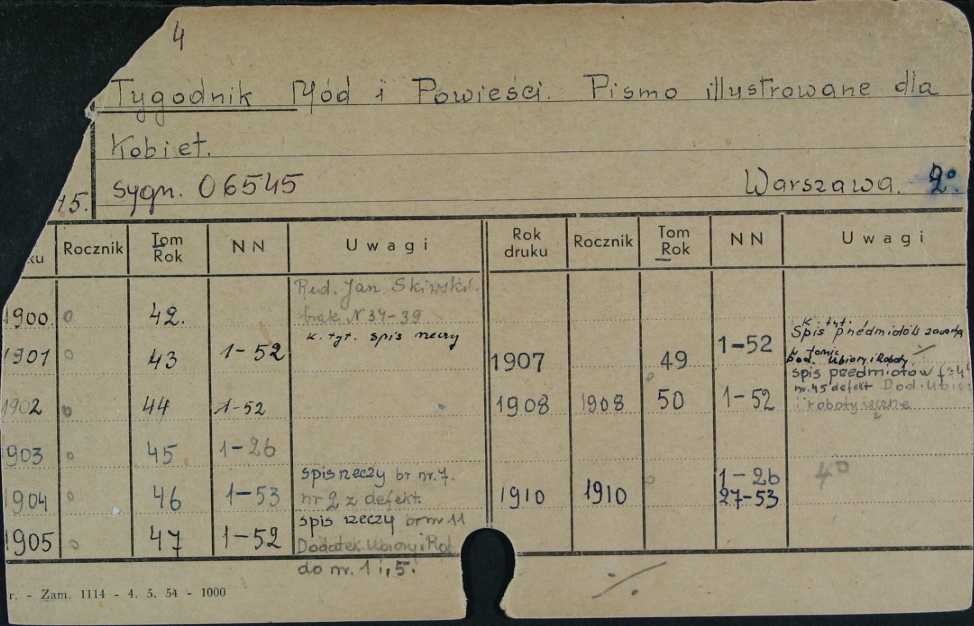 4
Tygodnik Mód i Powieści. Pismo illustrowane dla
Kobiet.
15. sygn. 06545 Warszawa. 2°
ku Rocznik Tom Rok NN Uwagi Rok druku Rocznik Tom Rok NN Uwagi
1900. 42. Red. Jan Skiwski.
brak N 34-39
1901 43 1-52 k. tyt. spis rzeczy
1907 49 1-52 k. tyt.
Spis przedmiotów zawarta
w tomie
Dod. Ubiory i Roboty.
1902 44 1-52
1908 1908 50 1-52 spis przedmiotów
nr. 45 defekt Dod. Ubior
i roboty ręczne
1903 45 1-26
1904 46 1-53 spis rzeczy br nr. 7.
nr 2 z defekt.
1910 1910 1-26
27-53 4°
1905 47 1-52 spis rzeczy br nr 11
Dodatek Ubiory i Rob.
do nr. 1 i, 5.
r. - Zam. 1114 - 4. 5. 54 - 1000